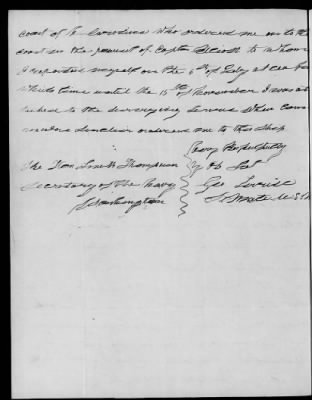 coast of N Carolina who ordered me on to this
coast in the pursuit of Captn Elliott to whom
I reported myself on the 6th of July at
which time until the 15th of November I was at-
tached to the surveying service when Com-
mander Sinclair ordered me to this Ship
Very Respectfully
Yr Ob Svt
Geo
The Hon
Thompson
Secretary of the Navy
Washington